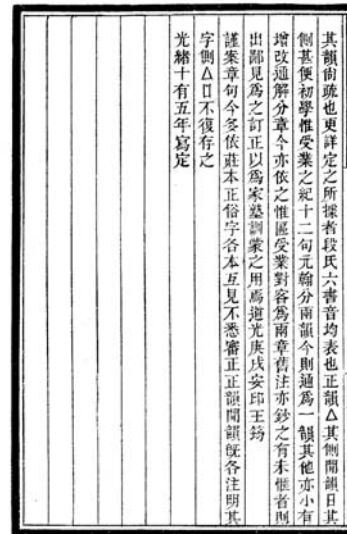 其韻尙疏也更詳定之所據者段氏六書音均表也正韻△其側閒韻日其
側甚便初學惟受業之紀十二句元翰分兩韻今則通爲一韻其他亦小有
增改通解分章今亦依之惟區受業對客爲兩章舊注亦鈔之有未愜者則
出鄙見爲之訂正以爲家塾訓蒙之用焉道光庚戌安邱王筠
謹案章句今多依莊本正俗字各本互見不悉審正正韻閒韻旣各注明其
字側△口不復存之
光緒十有五年寫定